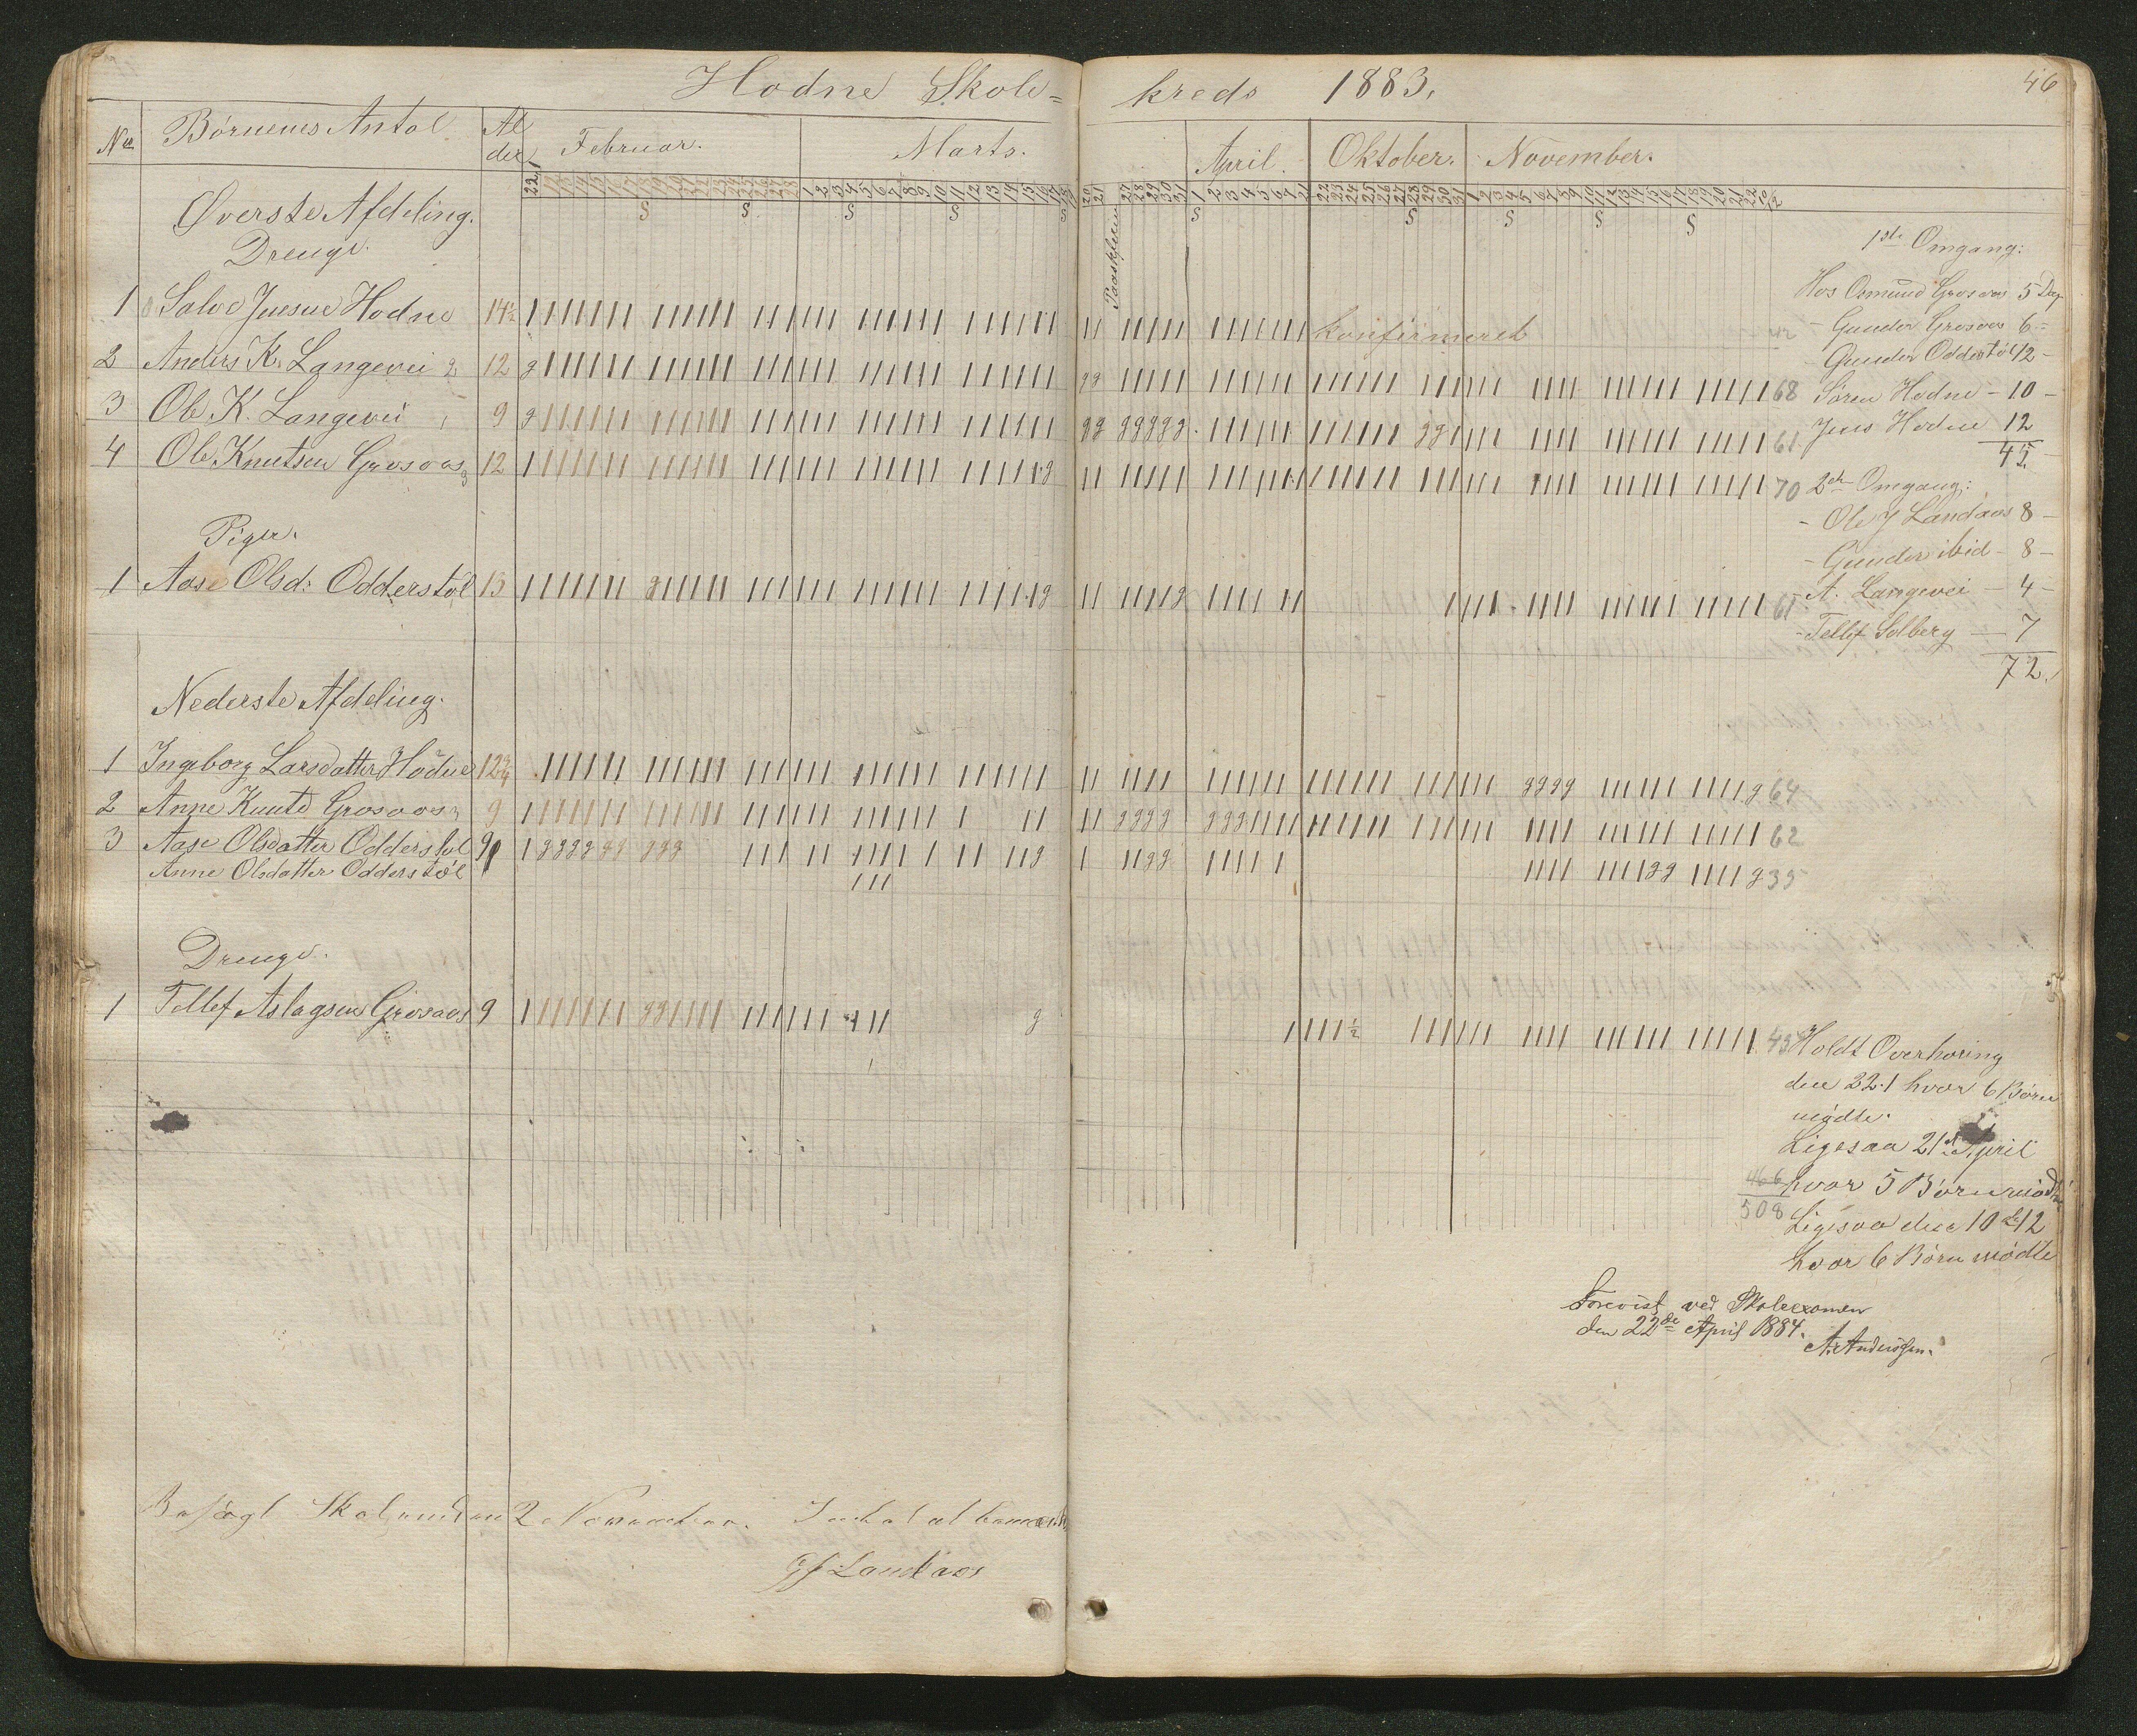 Hodne Skole= kreds 1883.
46
No Børnenes Antal Al der Februar. Marts. April. Oktober. November.
Øverste Afdeling.
Drenge.
Paaskeferie
1 Salve Jensen Hodne 14½ konfirmeret
2 Anders K. Langevei 12 68
3 Ole K. Langevei 9 61
4 Ole Knutsen Grosaas 12 70
Piger.
1 Aase Olsd: Odderstøl 13 61
Nederste Afdeling.
1 Ingeborg Larsdatter Hodne 12¾ 64
2 Anne Knutsd Grosaas 9 62
3 Aase Olsdatter Odderstøl 9 35
Anne Olsdatter Odderstøl
Drenge.
1 Tellef Aslagsen Grosaas 9 ½ 43
1ste Omgang:
Hos Osmund Grosaas 5 Dag
- Gunder Grosaas 6 -
- Gunder Odderstøl 12 -
Søren Hodne - 10 -
Jens Hodne 12
45
2den Omgang:
- Ole J Landaas 8 -
- Gunder ibid - 8 -
- A. Langevei - 4 -
- Tellef Solberg - 7
72.
Holdt Overhøring
den 22.1 hvor 6 Børn
mødte.
Ligesaa 21de April
hvor 5 Børn mødte
466
508
Ligesaa den 10de 12
hvor 6 Børn mødte
Forevist ved Skoleexamen
den 22de April 1884.
A. Anderssen.
Besøgt Skolen den 2 November.
Landaas